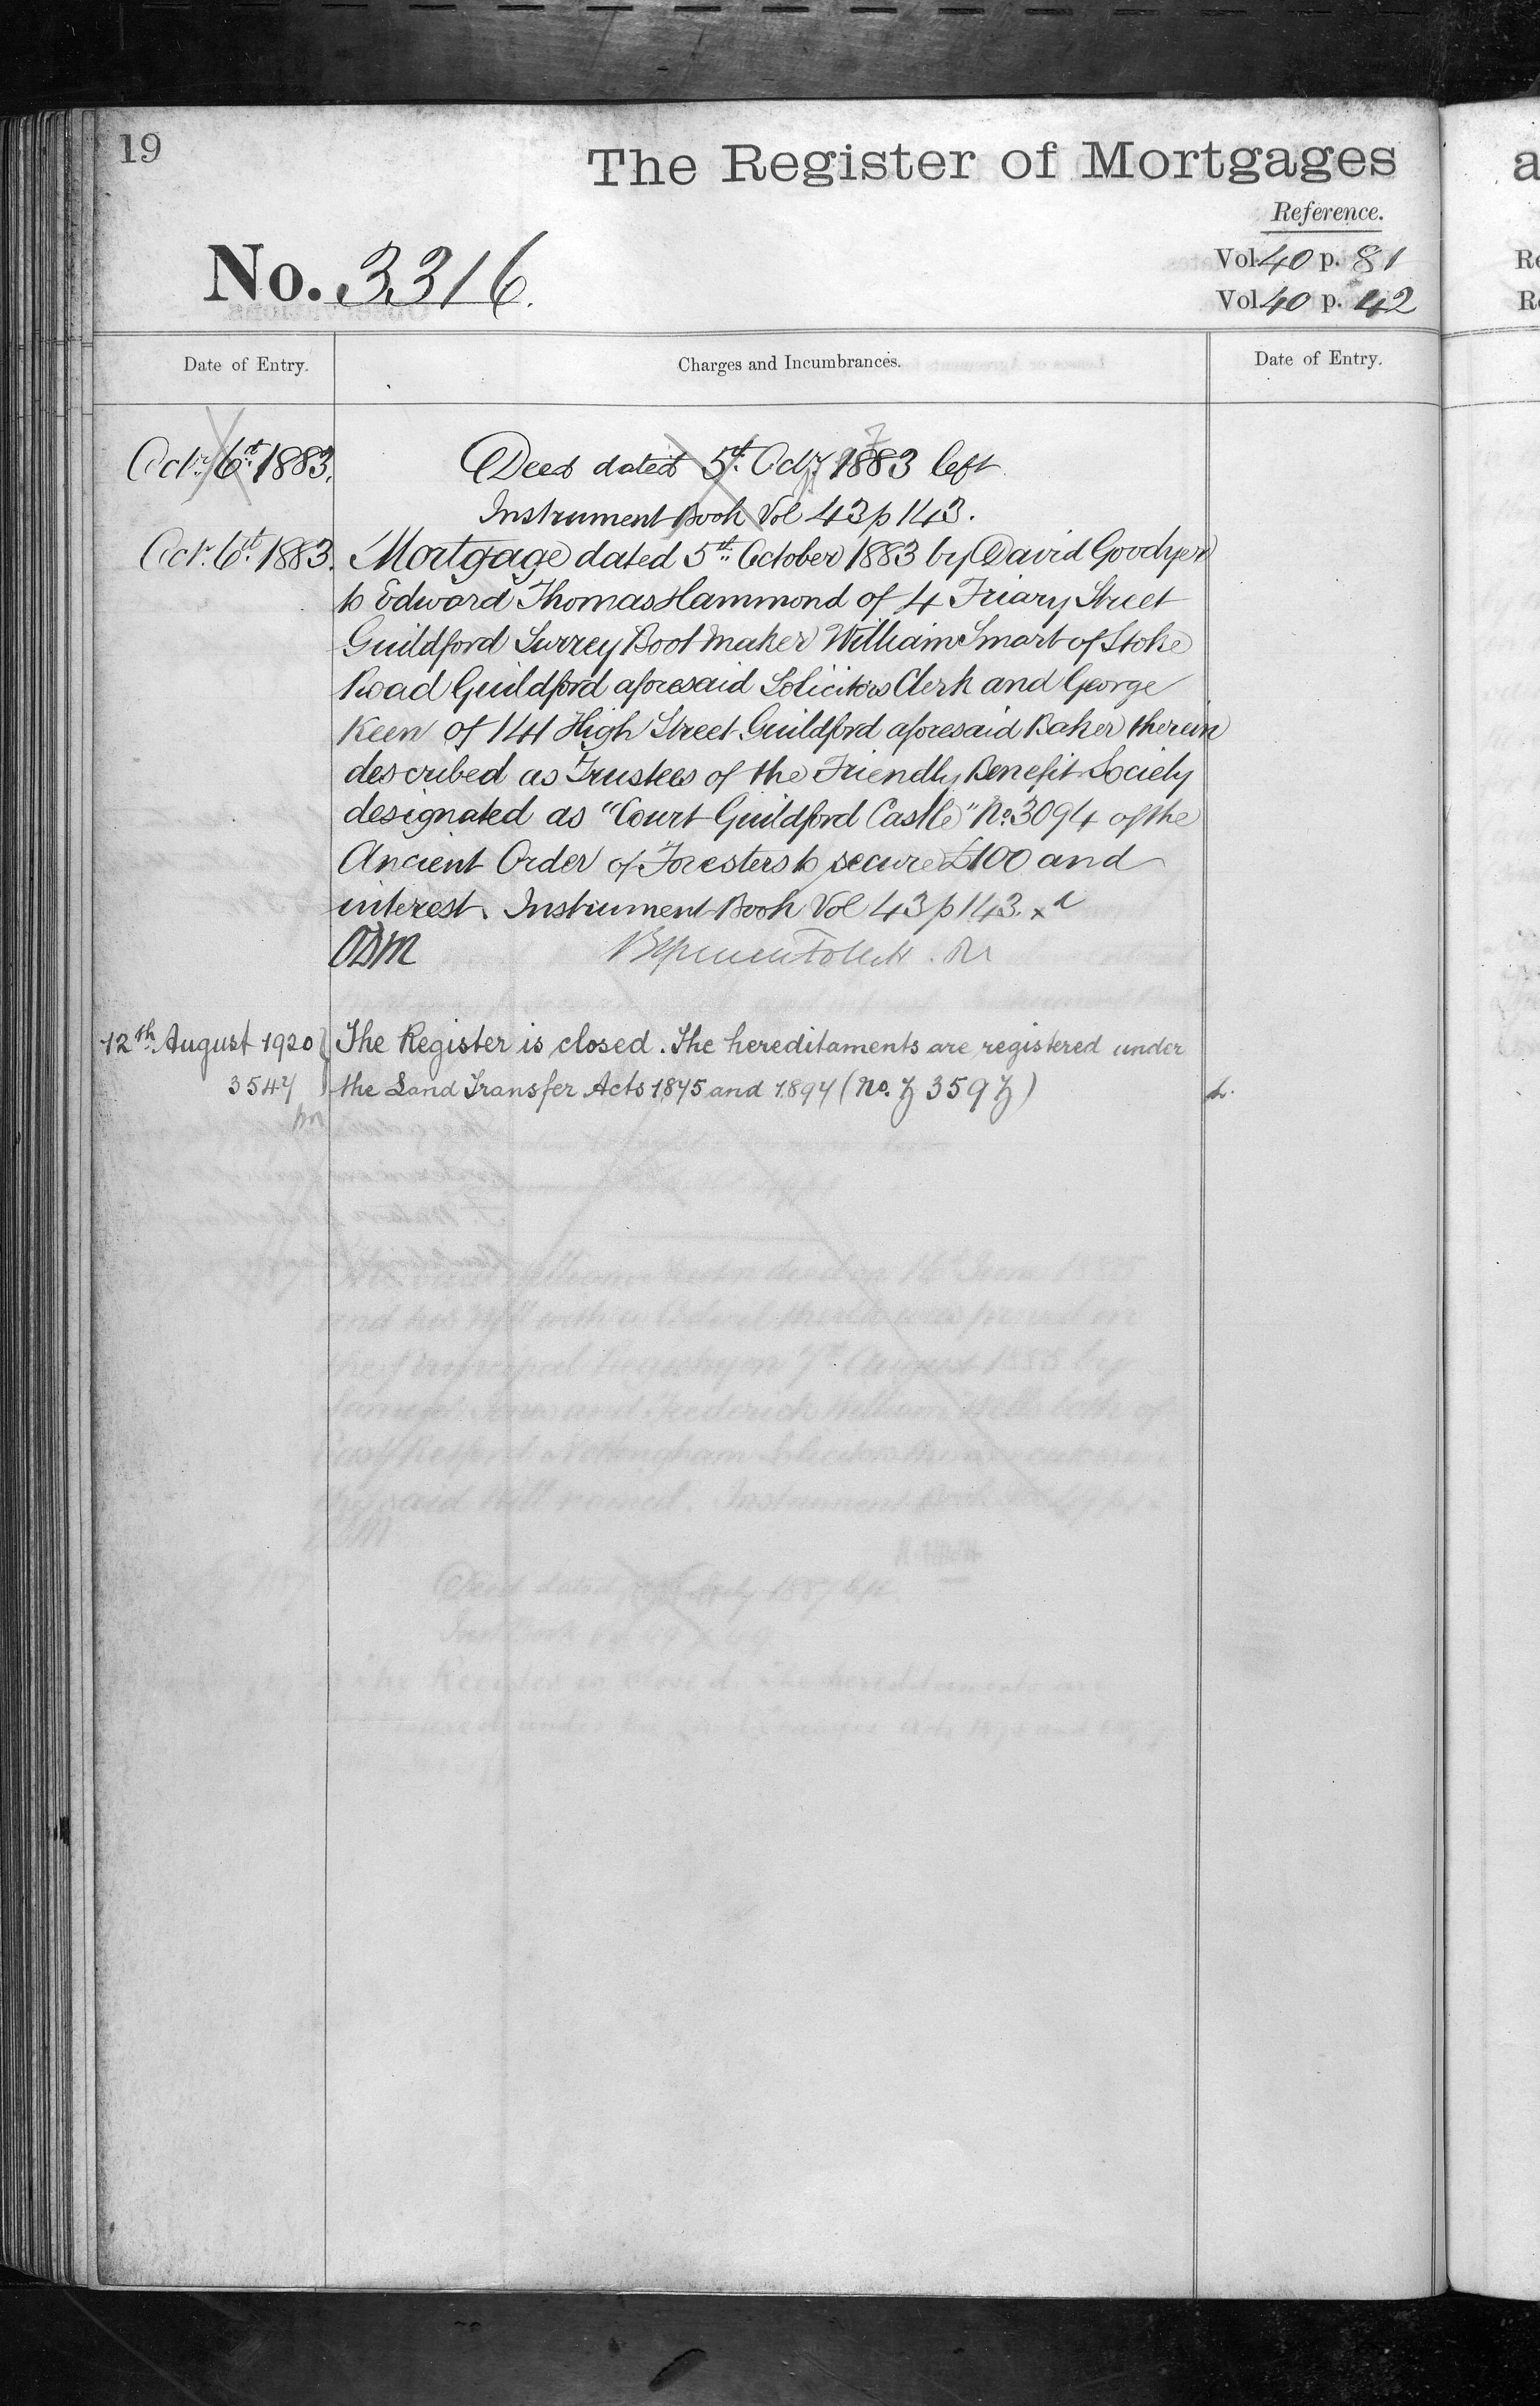 19
The Register of Mortgages
Reference.
No. 3316.
Vol. 40 p. 81
Vol. 40 p. 42
Date of Entry.
Charges and Incumbrances.
Date of Entry.
Octr. 6th 1883.
Deed dated 5th Octr 1883 left
Instrument Book Vol 43 p 143.
Octr. 6th 1883.
Mortgage dated 5th October 1883 by David Goodyer
to Edward Thomas Hammond of 4 Friary Street
Guildford Surrey Boot Maker William Smart of Stoke
Road Guildford aforesaid Solicitors Clerk and George
Keen of 141 High Street Guildford aforesaid Baker therein
described as Trustees of the Friendly Benefit Society
designated as "Court Guildford Castle" No. 3094 of the
Ancient Order of Foresters to secure £100 and
interest. Instrument Book Vol 43 p 143.
ODM
12th August 1920
The Register is closed. The hereditaments are registered under
3547
the Land Transfer Acts 1875 and 1897 (No. Z 3597)